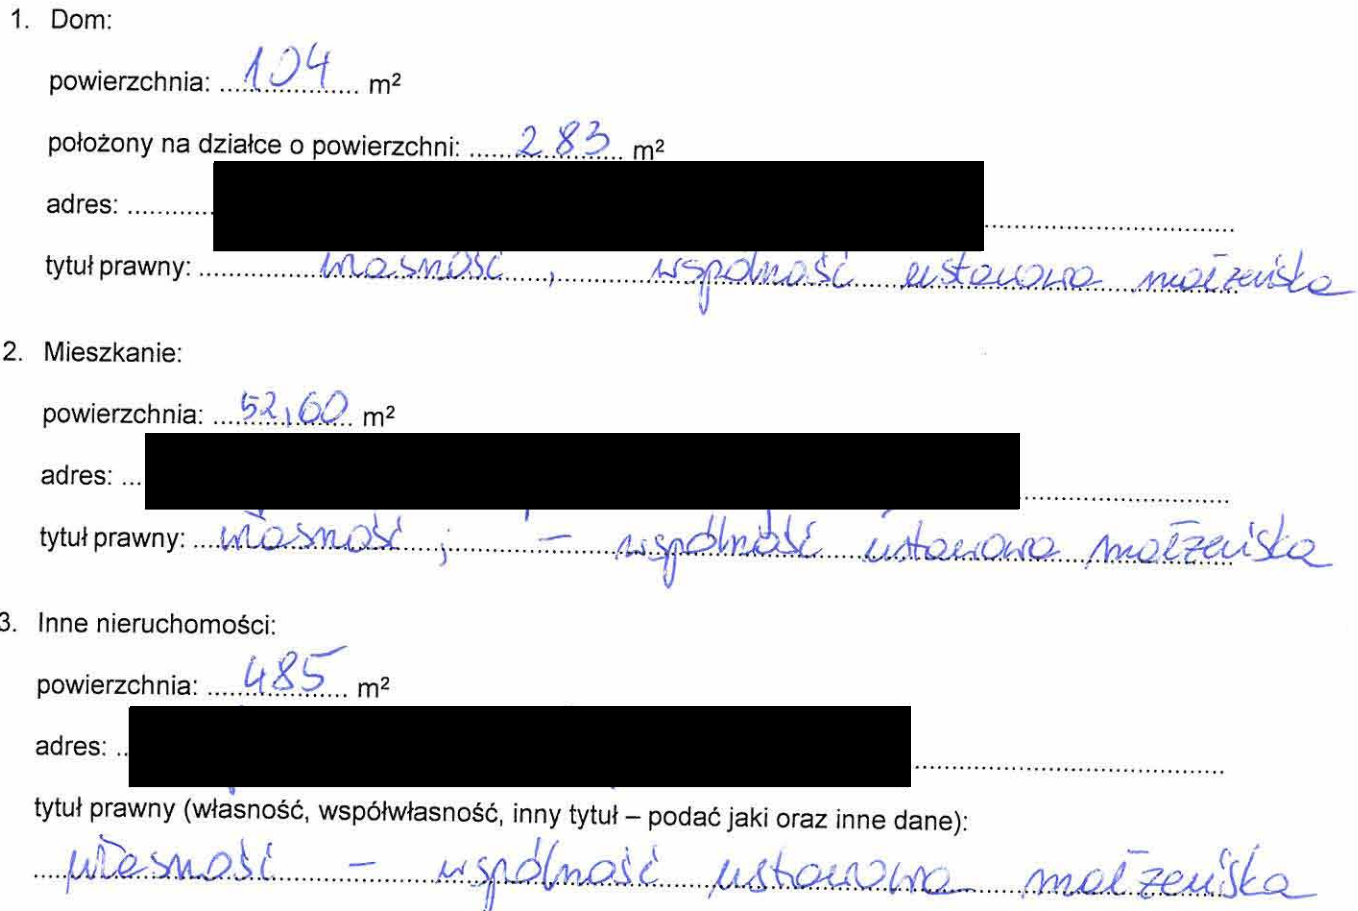 1. Dom:
powierzchnia: 104 m²
położony na działce o powierzchni: 283 m²
adres:
tytuł prawny: własność, wspólność ustawowa małżeńska
2. Mieszkanie:
powierzchnia: 52,60 m²
adres:
tytuł prawny: własność; – wspólność ustawowa małżeńska
3. Inne nieruchomości:
powierzchnia: 485 m²
adres:
tytuł prawny (własność, współwłasność, inny tytuł – podać jaki oraz inne dane):
własność – wspólność ustawowa małżeńska